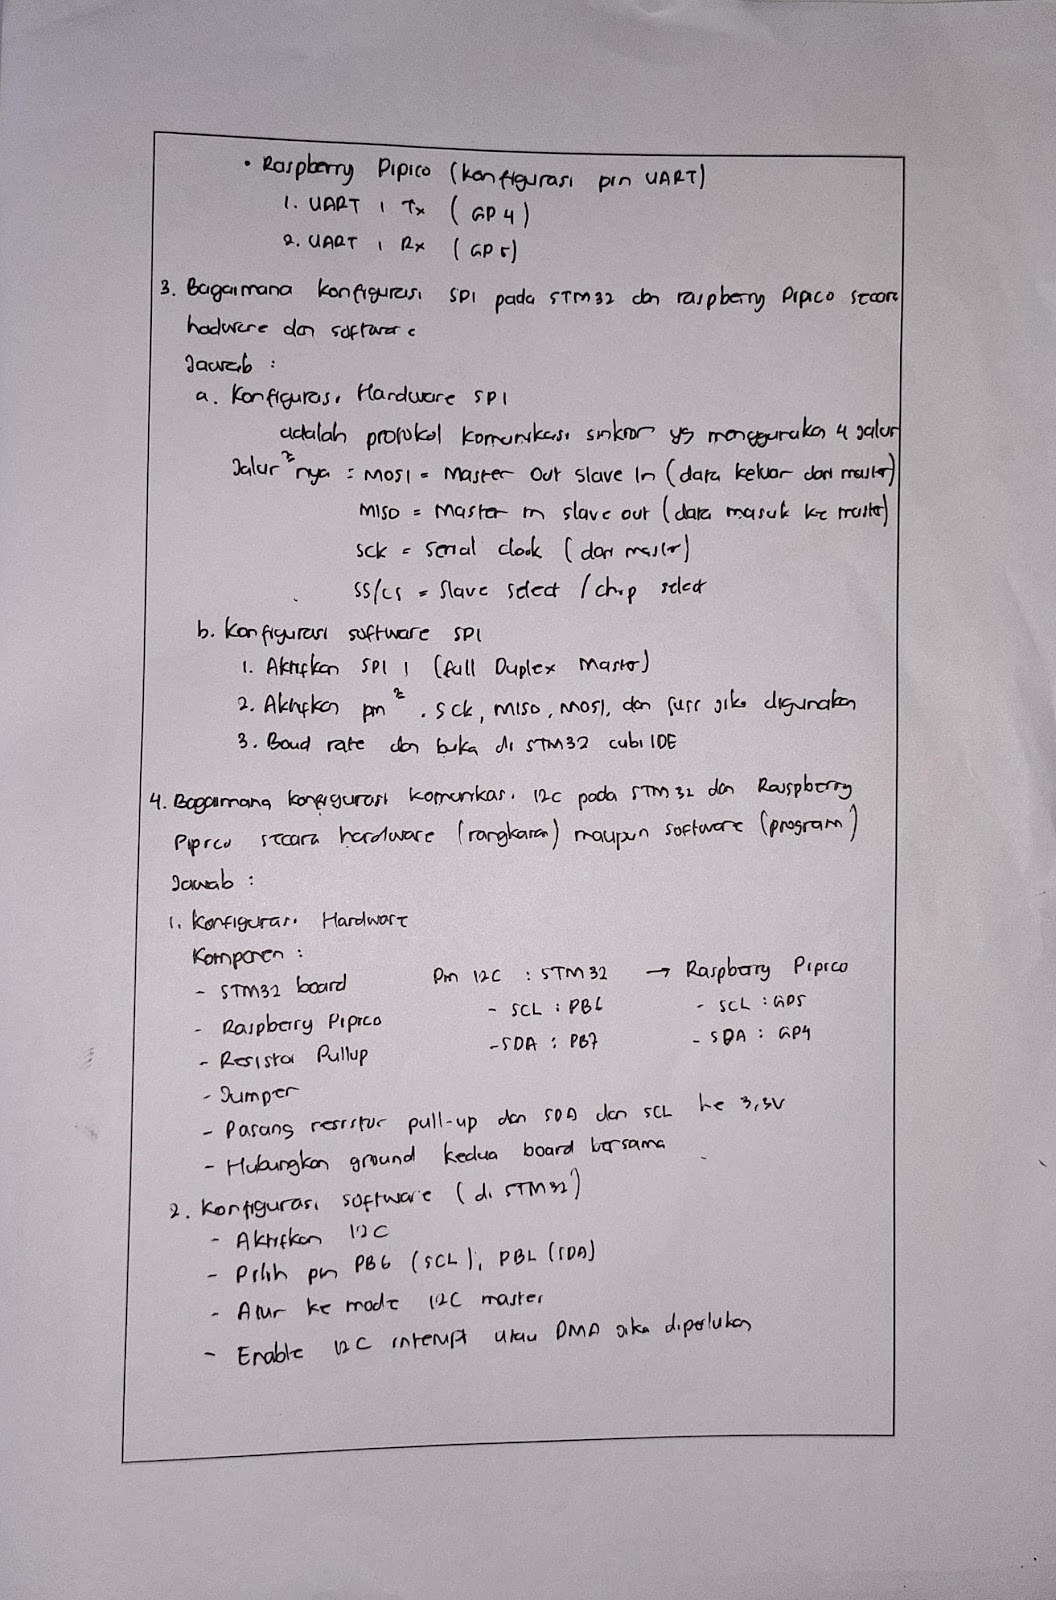 • Raspberry Pipico (konfigurasi pin UART)
1. UART 1 Tx (GP4)
2. UART 1 Rx (GP5)
3. Bagaimana konfigurasi SPI pada STM32 dan raspberry Pipico secara
hadware dan software
Jawab :
a. Konfigurasi Hardware SPI
adalah protokol komunikasi sinkron yg menggunakan 4 jalur
Jalur²nya : MOSI = Master Out Slave In (data keluar dari master)
MISO = Master in slave out (data masuk ke master)
SCK = Serial clock (dari master)
SS/CS = Slave select / chip select
b. Konfigurasi software SPI
1. Aktifkan SPI 1 (full Duplex Master)
2. Aktifkan pin². SCK, MISO, MOSI, dan jika digunakan
3. Boud rate dan buka di STM32 cubi IDE
4. Bagaimana konfigurasi komunikasi I2C pada STM 32 dan Rauspberry
Pipico secara hardware (rangkaian) maupun software (program)
Jawab :
1. Konfigurasi Hardware
Komponen :
- STM32 board
- Raspberry Pipico
- Resistor Pullup
- Jumper
Pin I2C : STM32 → Raspberry Pipico
- SCL : PB6 - SCL : GP5
- SDA : PB7 - SDA : GP4
- Pasang resistor pull-up dan SDA dan SCL ke 3,3V
- Hubungkan ground kedua board bersama
2. Konfigurasi software (di STM32)
- Aktifkan I2C
- Pilih pin PB6 (SCL), PBL (SDA)
- Atur ke mode I2C master
- Enable I2C interupt atau DMA jika diperlukan